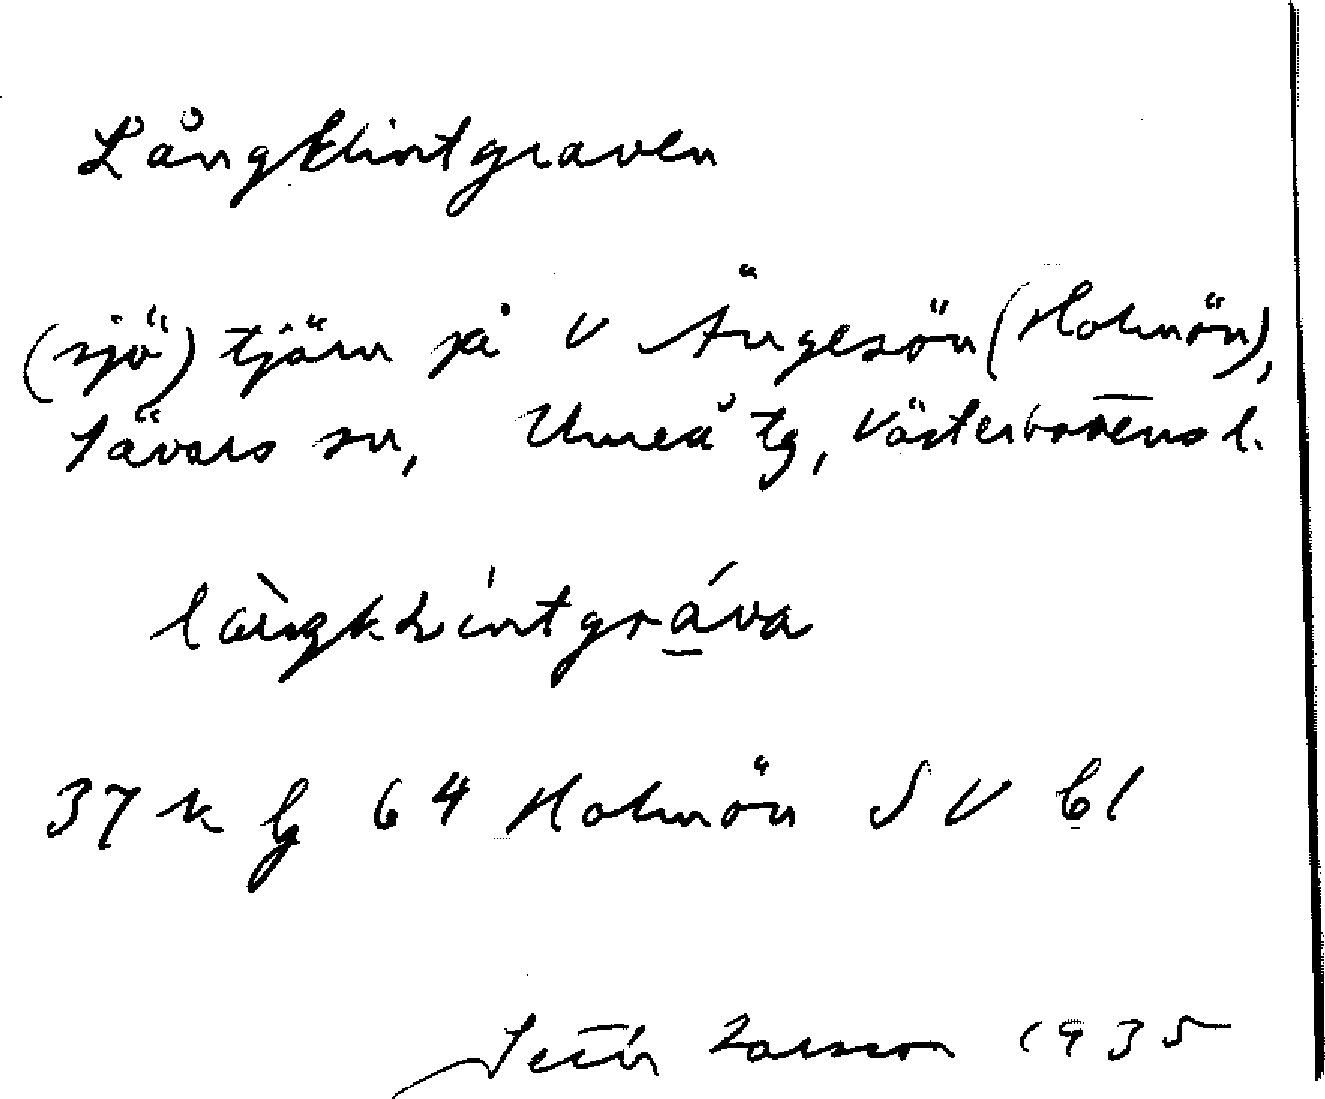 Långklintgraven
(sjö) tjärn på V Ängesön (Holmön),
Sävars sn, Umeå tg, Västerbottens l.
37 k 64 Holmön SV bl
Larsson 1935